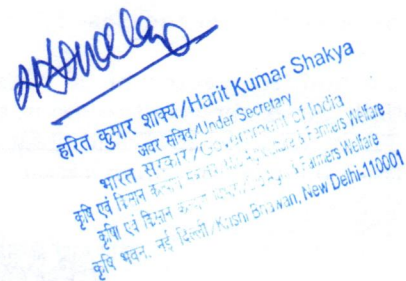 हरित कुमार शाक्य/Harit Kumar Shakya
अवर सचिव/Under Secretary
भारत सरकार/Government of India
कृषि एवं किसान कल्याण Agriculture & Farmers Welfare
कृषि एवं किसान कल्याण Farmers Welfare
कृषि भवन, नई दिल्ली/Krishi Bhawan, New Delhi-110001